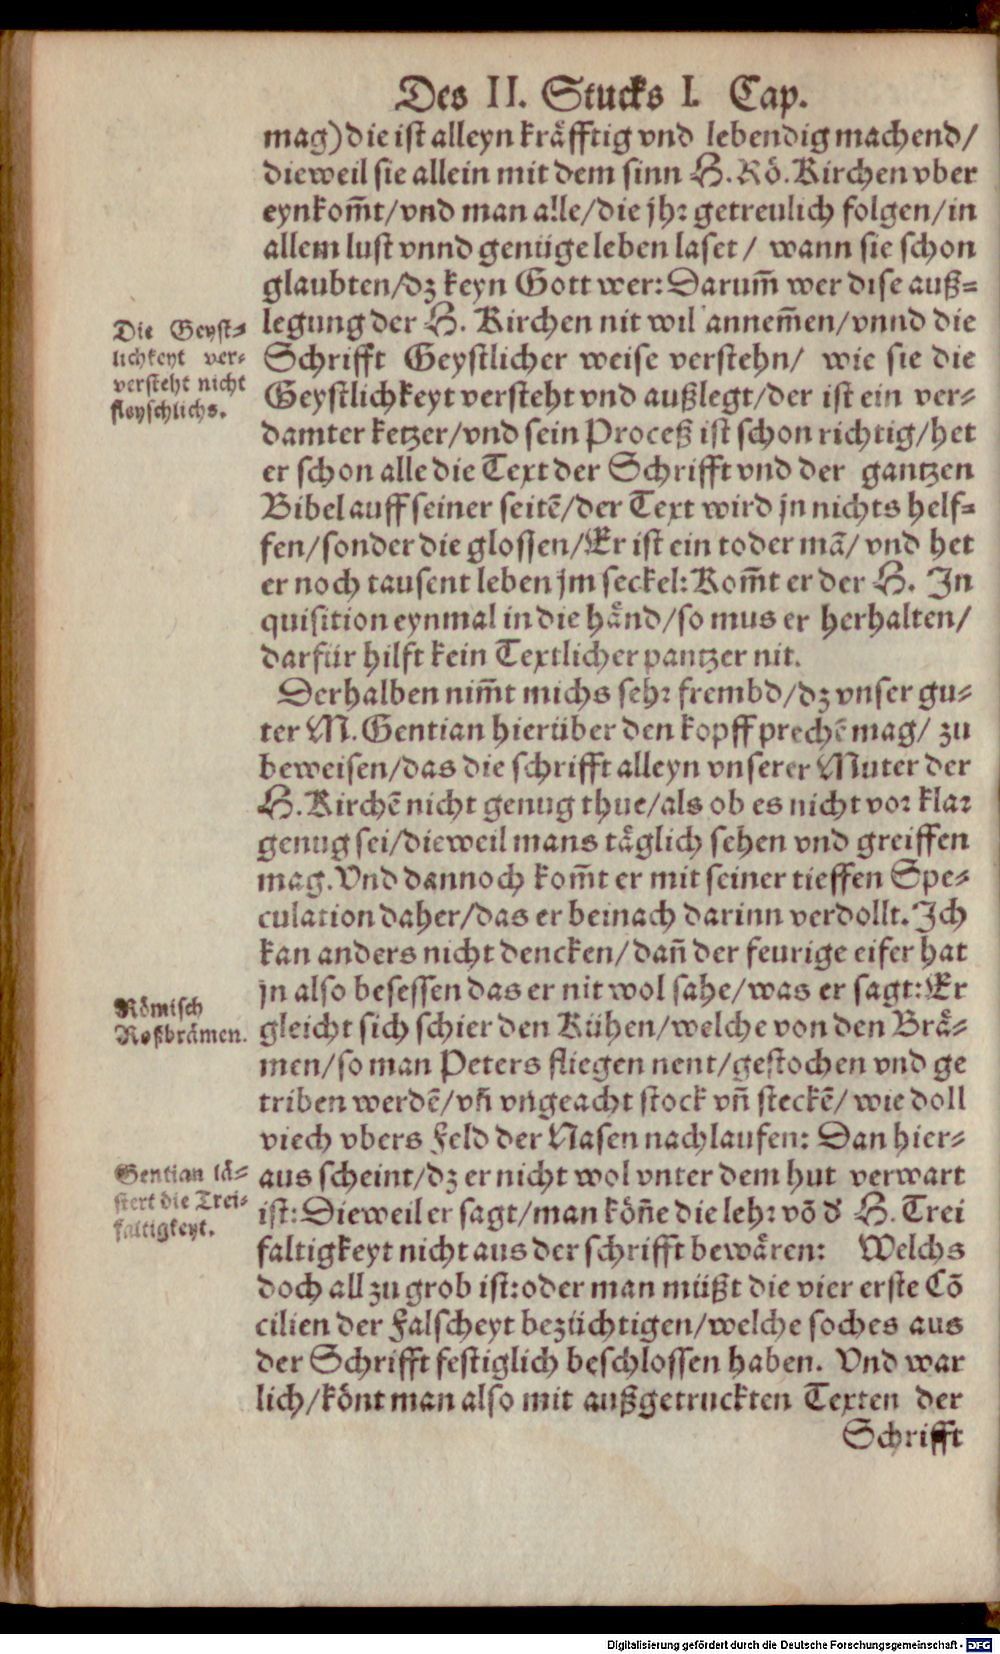 Des II. Stucks I. Cap.
mag) die ist alleyn kräfftig vnd lebendig machend/
dieweil sie allein mit dem sinn H. Rö. Kirchen vber
eynkom̃t/vnd man alle/die jhr getreulich folgen/in
allem lust vnnd genüge leben laset/ wann sie schon
glaubten/dz keyn Gott wer: Darum̃ wer dise auß-
legung der H. Kirchen nit wil annem̃en/vnnd die
Schrifft Geystlicher weise verstehn/ wie sie die
Geystlichkeyt versteht vnd außlegt/der ist ein ver-
damter ketzer/vnd sein Proceß ist schon richtig/het
er schon alle die Text der Schrifft vnd der gantzen
Bibel auff seiner seitẽ/der Text wird jn nichts helf-
fen/sonder die glossen/Er ist ein toder mã/ vnd het
er noch tausent leben jm seckel: Kom̃t er der H. In
quisition eynmal in die händ/so mus er herhalten/
darfür hilft kein Textlicher pantzer nit.
Die Geyst-
lichkeyt ver-
versteht nicht
fleyschlichs.
Derhalben nim̃t michs sehr frembd/dz vnser gu-
ter M. Gentian hierüber den kopff prechẽ mag/ zu
beweisen/das die schrifft alleyn vnserer Muter der
H. Kirchẽ nicht genug thue/als ob es nicht vor klar
genug sei/dieweil mans täglich sehen vnd greiffen
mag. Vnd dannoch kom̃t er mit seiner tieffen Spe-
culation daher/das er beinach darinn verdollt. Ich
kan anders nicht dencken/dañ der feurige eifer hat
jn also besessen das er nit wol sahe/was er sagt: Er
gleicht sich schier den Kühen/welche von den Brä-
men/so man Peters fliegen nent/gestochen vnd ge
triben werdẽ/vñ vngeacht stock vñ steckẽ/ wie doll
viech vbers Feld der Nasen nachlaufen: Dan hier-
aus scheint/dz er nicht wol vnter dem hut verwart
ist: Dieweil er sagt/man köñe die lehr võ d' H. Trei
faltigkeyt nicht aus der schrifft bewären: Welchs
doch all zu grob ist: oder man müßt die vier erste Cõ
cilien der Falscheyt bezüchtigen/welche soches aus
der Schrifft festiglich beschlossen haben. Vnd war
lich/könt man also mit außgetruckten Texten der
Römisch
Roßbrämen.
Gentian lä-
stert die Trei-
faltigkeyt.
Schrifft
Digitalisierung gefördert durch die Deutsche Forschungsgemeinschaft - DFG